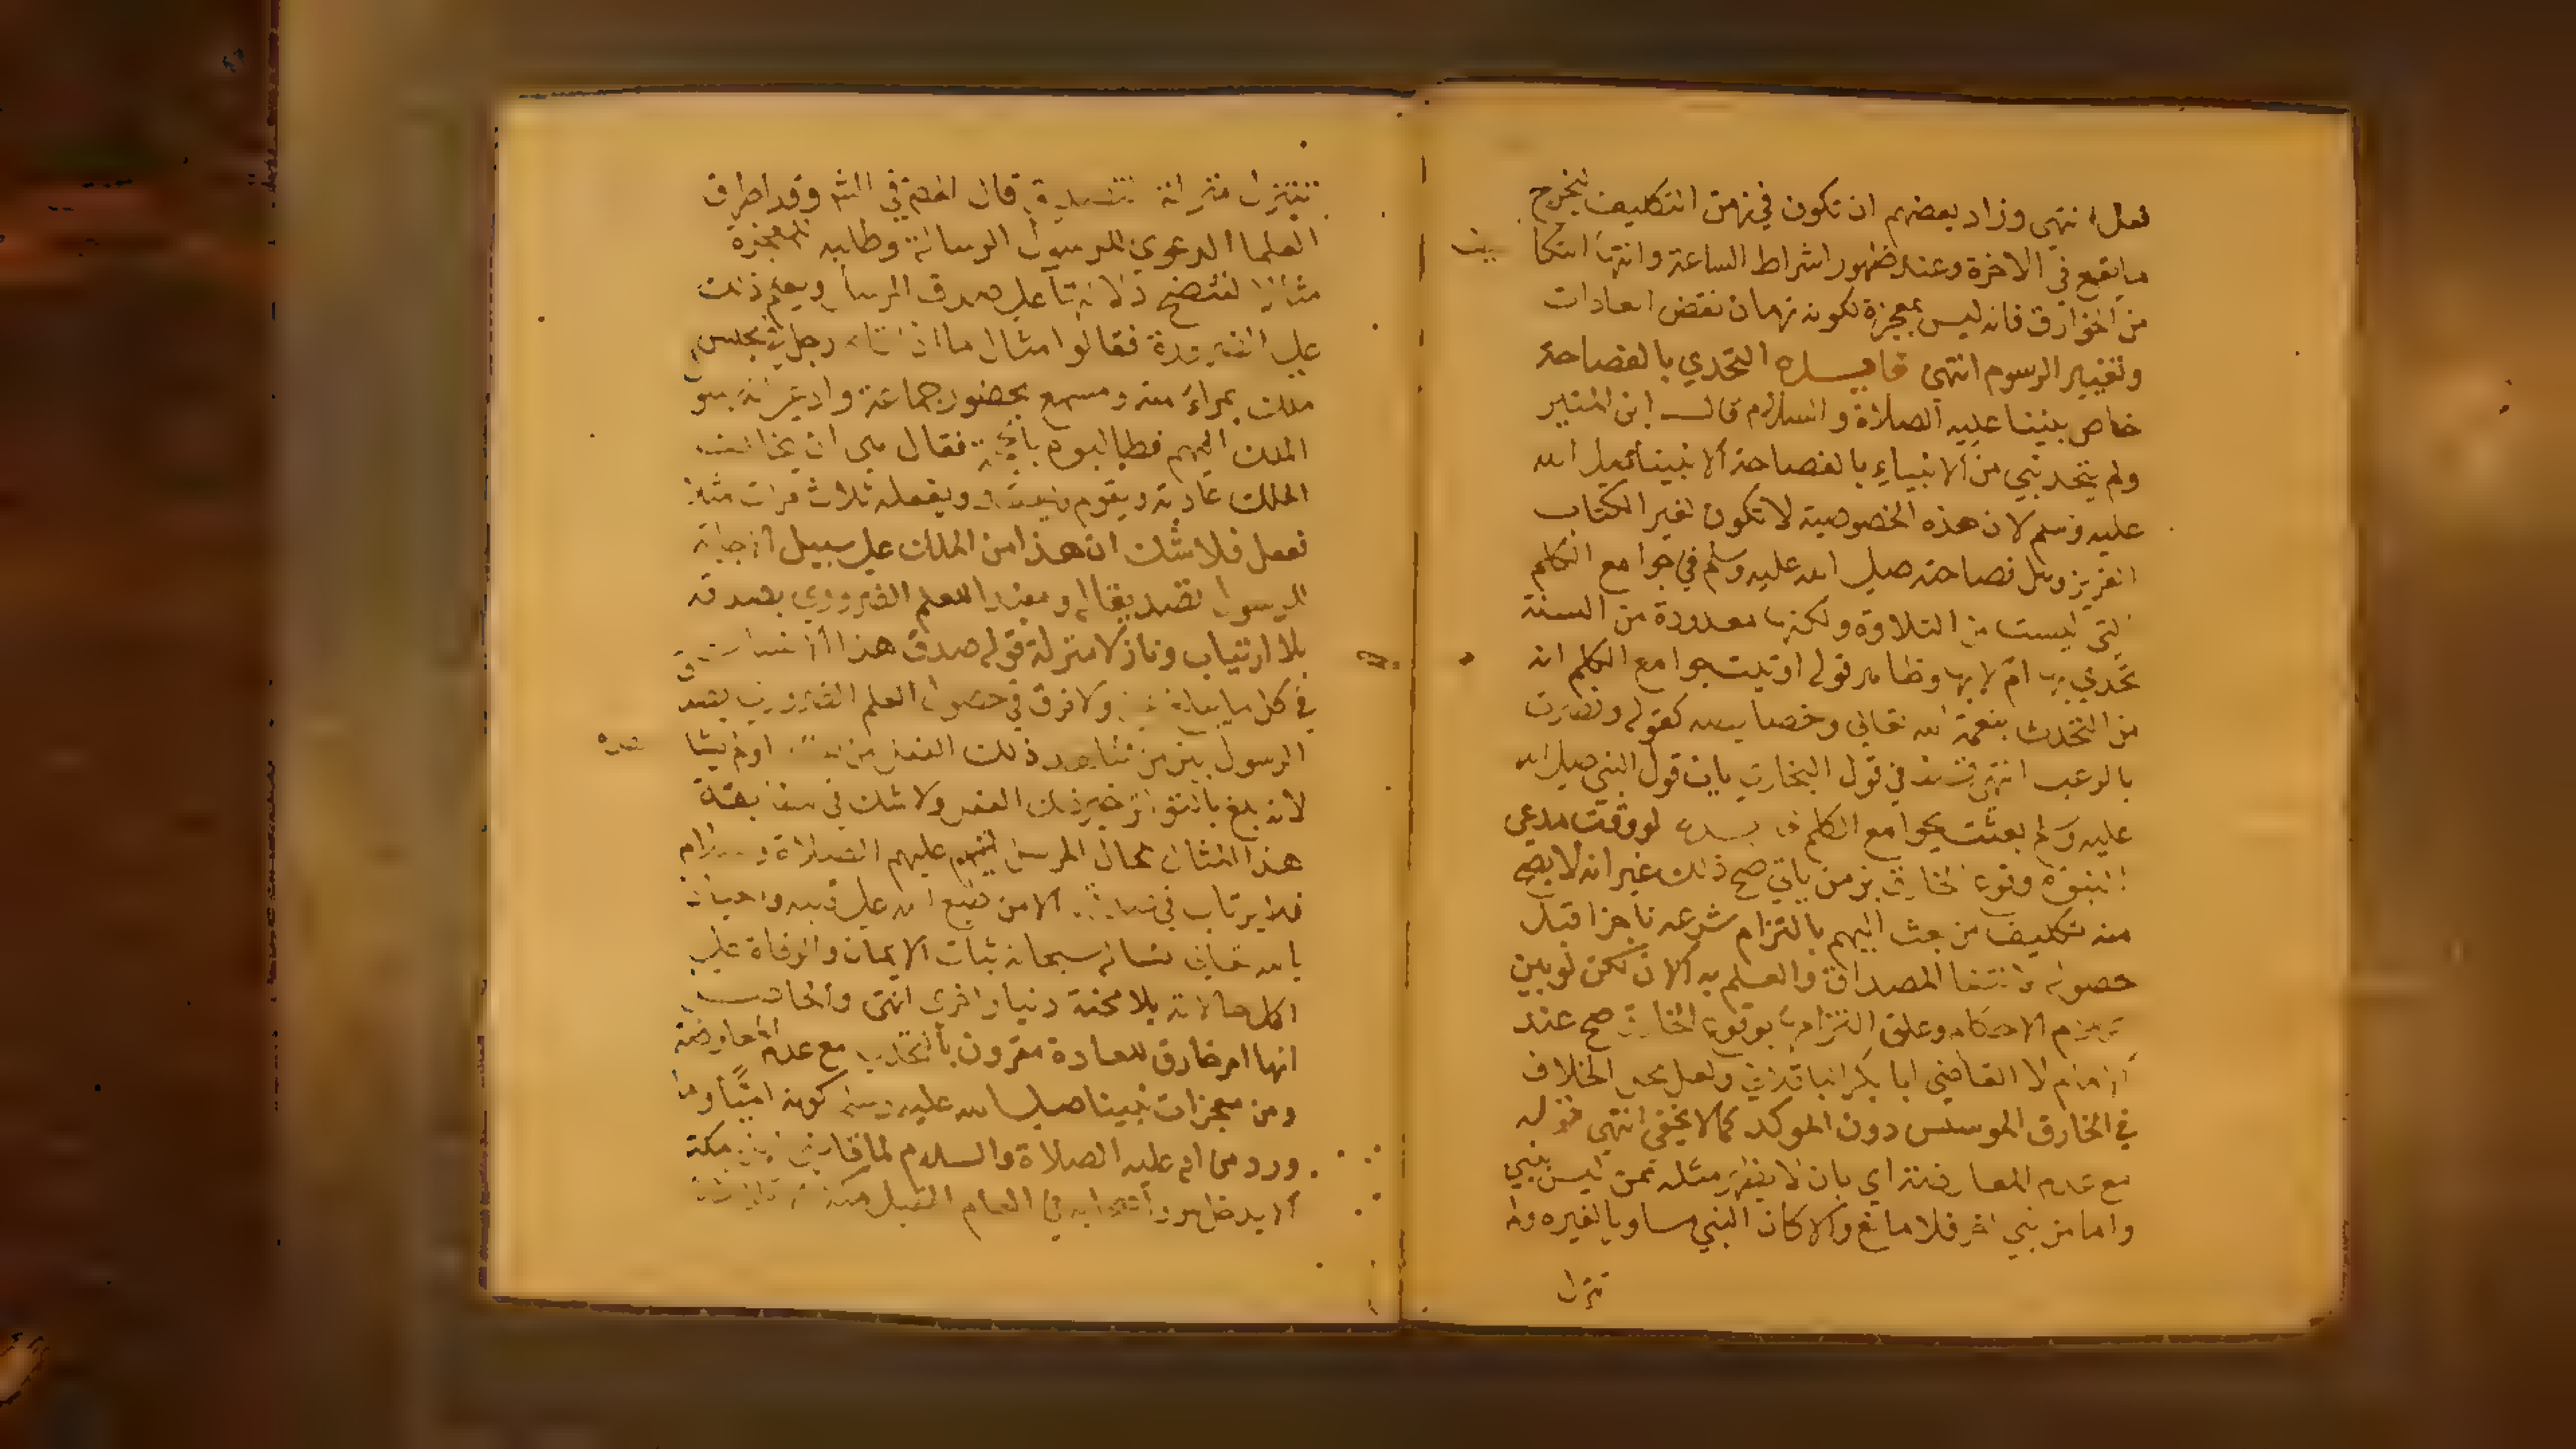 فعل انتهى وزاد بعضهم ان تكون في زمن التكليف ليخرج
ما يقع في الاخرة وعند ظهور اشراط الساعة وانتها التكا
ليف
من الخوارق فانه ليس بمعجزة لكونه زمان نقض العادات
وتغيير الرسوم انتهى فايدة التحدي بالفصاحة
خاص بنبينا عليه الصلاة والسلام قال ابن المنير
ولم يتحد نبي من الانبياء بالفصاحة الا نبينا صلى الله
عليه وسلم لان هذه الخصوصية لا تكون لغير الكتاب
العزيز وهل فصاحته صلى الله عليه وسلم في جوامع الكلم
التي ليست من التلاوة ولكنها معدودة من السنة
تحدي بها ام لا وظاهر قوله اوتيت جوامع الكلم انه
من التحدث بنعمة الله تعالى وخصايصه كقوله ونصرت
بالرعب انتهى في قول البخاري باب قول النبي صلى الله
عليه وسلم بعثت بجوامع الكلم لو وقت مدعي
النبوة وقوع الخارق بزمن ياتي صح ذلك غير انه لا يصح
منه تكليف من بعث اليهم بالتزام شرعه ناجزا قبل
حصوله وانتفا المصداق والعلم به الان لكن لو بين
الاحكام وعلق التزامها بوقوع الخارق صح عند
الامام لا القاضي ابا بكر الباقلاني ولعل محل الخلاف
في الخارق الموسس دون الموكد كما لا يخفى انتهى قوله
مع عدم المعارضة اي بان لا يظهر مثله ممن ليس بنبي
واما من نبي اخر فلا مانع والا كان النبي مساويا لغيره ولم
تنزل
تتنزل منزلة التصديق قال في الشر وقد اطرق
العلما الدعوي الرسول الرسالة وطلبه المعجزة
مثالا لتتضح دلالتها على صدق الرسل ويعلم ذلك
على الضرورة فقالوا مثال ما اذا قام رجل في مجلس
ملك بمراى منه ومسمع بحضور جماعة وادعى انه رسول
الملك اليهم فطالبوه بالحجة فقال هي ان يخالف
الملك عادته ويقوم ويقعد ويفعله ثلاث مرات مثلا
ففعل فلا شك ان هذا من الملك على سبيل الاجابة
للرسول تصديقا له ومفيد للعلم الضروري بصدقه
بلا ارتياب ونازلا منزلة قوله صدق هذا الانسان
في كل ما يبلغ عني ولا فرق في حصول العلم الضروري بصدق
الرسول بين من شاهد ذلك الفعل من الملك او لم يشا
هده
لانه بلغ بالتواتر خبر ذلك الفعل ولا شك في مطابقة
هذا المثال لحال الرسل عليهم الصلاة والسلام
فلا يرتاب في صدقهم الا من طبع الله على قلبه والعياذ
بالله تعالى نساله سبحانه ثبات الايمان والوفاة على
اكمل حالاته بلا محنة دنيا واخرى انتهى والحاصل
انها امر خارق للعادة مقرون بالتحدي مع عدم المعارضة
ومن معجزات نبينا صلى الله عليه وسلم كونه اميا وما
ورد من انه عليه الصلاة والسلام لما قاضى اهل مكة
ان يدخل هو واصحابه في العام المقبل مكة